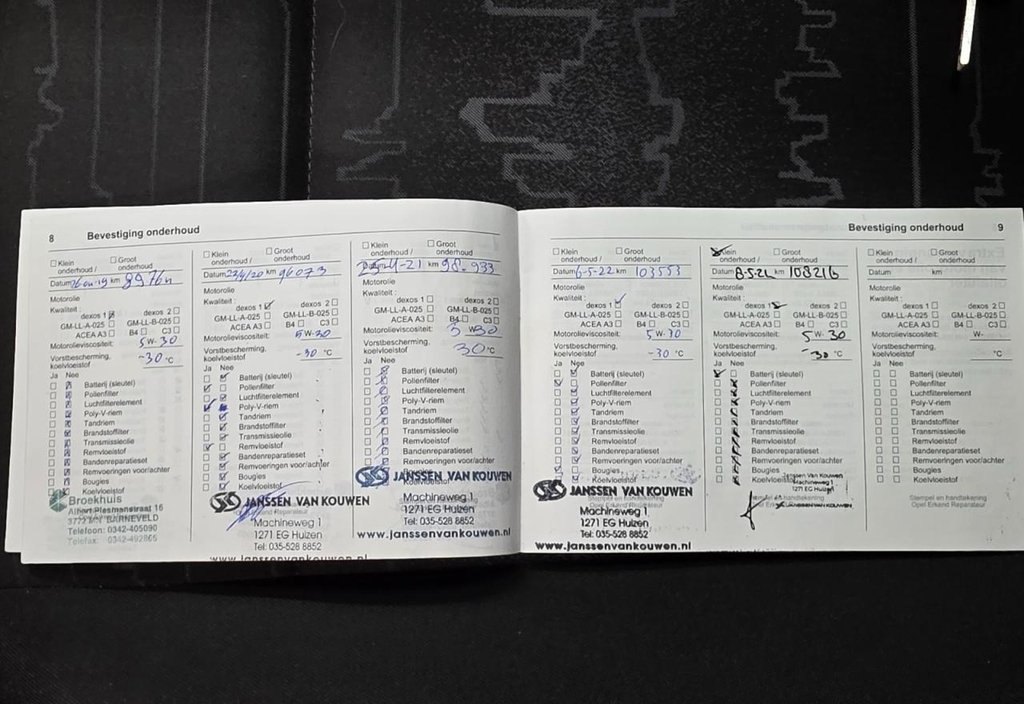 8 Bevestiging onderhoud
☐ Klein onderhoud / ☐ Groot onderhoud
km 
Motorolie
Kwaliteit :
dexos 1 ☑ dexos 2 ☐
GM-LL-A-025 ☐ GM-LL-B-025 ☐
ACEA A3 ☐ B4 ☐ C3 ☐
Motorolieviscositeit: 5 W- 30
Vorstbescherming, koelvloeistof -30 °C
Ja Nee
Batterij (sleutel)
Pollenfilter
Luchtfilterelement
Poly-V-riem
Tandriem
Brandstoffilter
Transmissieolie
Remvloeistof
Bandenreparatieset
Remvoeringen voor/achter
Bougies
Koelvloeistof
Broekhuis
Albert Plesmanstraat 16
BARNEVELD
Telefoon: 0342-405090
Telefax: 0342-492865
☐ Klein onderhoud / ☐ Groot onderhoud
Datum 23/4/20 km 96073
Motorolie
Kwaliteit :
dexos 1 ☑ dexos 2 ☐
GM-LL-A-025 ☐ GM-LL-B-025 ☐
ACEA A3 ☐ B4 ☐ C3 ☐
Motorolieviscositeit: 5 W-30
Vorstbescherming, koelvloeistof -30 °C
Ja Nee
Batterij (sleutel)
Pollenfilter
Luchtfilterelement
Poly-V-riem
Tandriem
Brandstoffilter
Transmissieolie
Remvloeistof
Bandenreparatieset
Remvoeringen voor/achter
Bougies
Koelvloeistof
JANSSEN VAN KOUWEN
Machineweg 1
1271 EG Huizen
Tel: 035-528 8852
www.janssenvankouwen.nl
☐ Klein onderhoud / ☐ Groot onderhoud
Datum km 98.933
Motorolie
Kwaliteit :
dexos 1 ☐ dexos 2 ☐
GM-LL-A-025 ☐ GM-LL-B-025 ☐
ACEA A3 ☐ B4 ☐ C3 ☐
Motorolieviscositeit: 5 W30
Vorstbescherming, koelvloeistof 30 °C
Ja Nee
Batterij (sleutel)
Pollenfilter
Luchtfilterelement
Poly-V-riem
Tandriem
Brandstoffilter
Transmissieolie
Remvloeistof
Bandenreparatieset
Remvoeringen voor/achter
JANSSEN VAN KOUWEN
Koelvloeistof
Machineweg 1
1271 EG Huizen
Tel: 035-528 8852
www.janssenvankouwen.nl
Bevestiging onderhoud 9
☐ Klein onderhoud / ☐ Groot onderhoud
Datum 6-5-22 km 103553
Motorolie
Kwaliteit :
dexos 1 ☑ dexos 2 ☐
GM-LL-A-025 ☐ GM-LL-B-025 ☐
ACEA A3 ☐ B4 ☐ C3 ☐
Motorolieviscositeit: 5 W-30
Vorstbescherming, koelvloeistof -30 °C
Ja Nee
Batterij (sleutel)
Pollenfilter
Luchtfilterelement
Poly-V-riem
Tandriem
Brandstoffilter
Transmissieolie
Remvloeistof
Bandenreparatieset
Remvoeringen voor/achter
Bougies
Koelvloeistof
JANSSEN VAN KOUWEN
Machineweg 1
1271 EG Huizen
Tel: 035-528 8852
www.janssenvankouwen.nl
☒ Klein onderhoud / ☐ Groot onderhoud
Datum km 108216
Motorolie
Kwaliteit :
dexos 1 ☑ dexos 2 ☐
GM-LL-A-025 ☐ GM-LL-B-025 ☐
ACEA A3 ☐ B4 ☐ C3 ☐
Motorolieviscositeit: 5 W- 30
Vorstbescherming, koelvloeistof -30 °C
Ja Nee
Batterij (sleutel)
Pollenfilter
Luchtfilterelement
Poly-V-riem
Tandriem
Brandstoffilter
Transmissieolie
Remvloeistof
Bandenreparatieset
Remvoeringen voor/achter
Bougies
Janssen Van Kouwen
Machineweg 1
1271 EG Huizen
JANSSEN VAN KOUWEN
☐ Klein onderhoud / ☐ Groot onderhoud
Datum km
Motorolie
Kwaliteit :
dexos 1 ☐ dexos 2 ☐
GM-LL-A-025 ☐ GM-LL-B-025 ☐
ACEA A3 ☐ B4 ☐ C3 ☐
Motorolieviscositeit: W-
Vorstbescherming, koelvloeistof °C
Ja Nee
Batterij (sleutel)
Pollenfilter
Luchtfilterelement
Poly-V-riem
Tandriem
Brandstoffilter
Transmissieolie
Remvloeistof
Bandenreparatieset
Remvoeringen voor/achter
Bougies
Koelvloeistof
Stempel en handtekening
Opel Erkend Reparateur